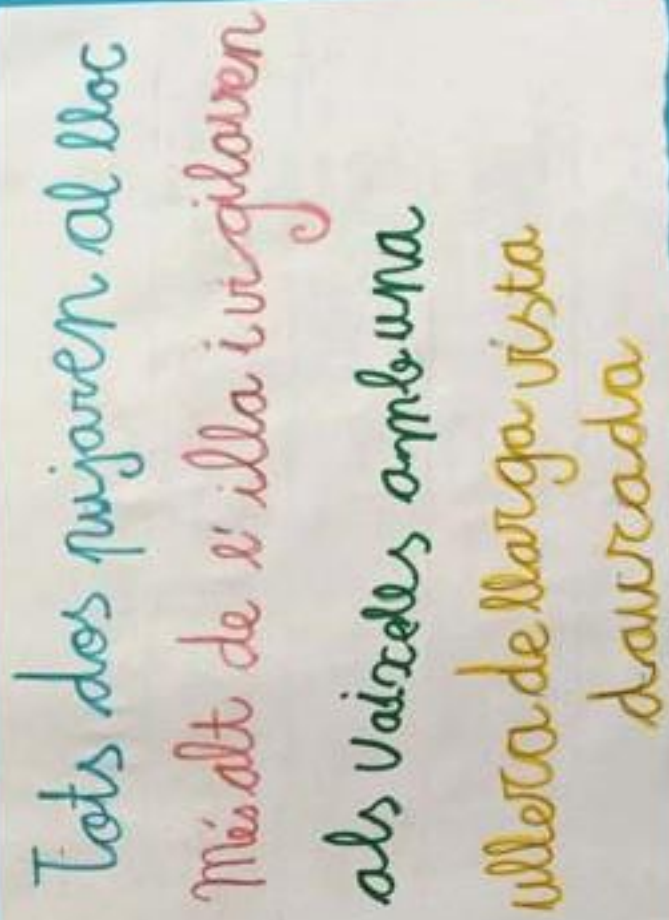 Tots dos pujaren al lloc
Més alt de l'illa i vigilaven
als Vaixells amb una
ullera de llarga vista
daurada